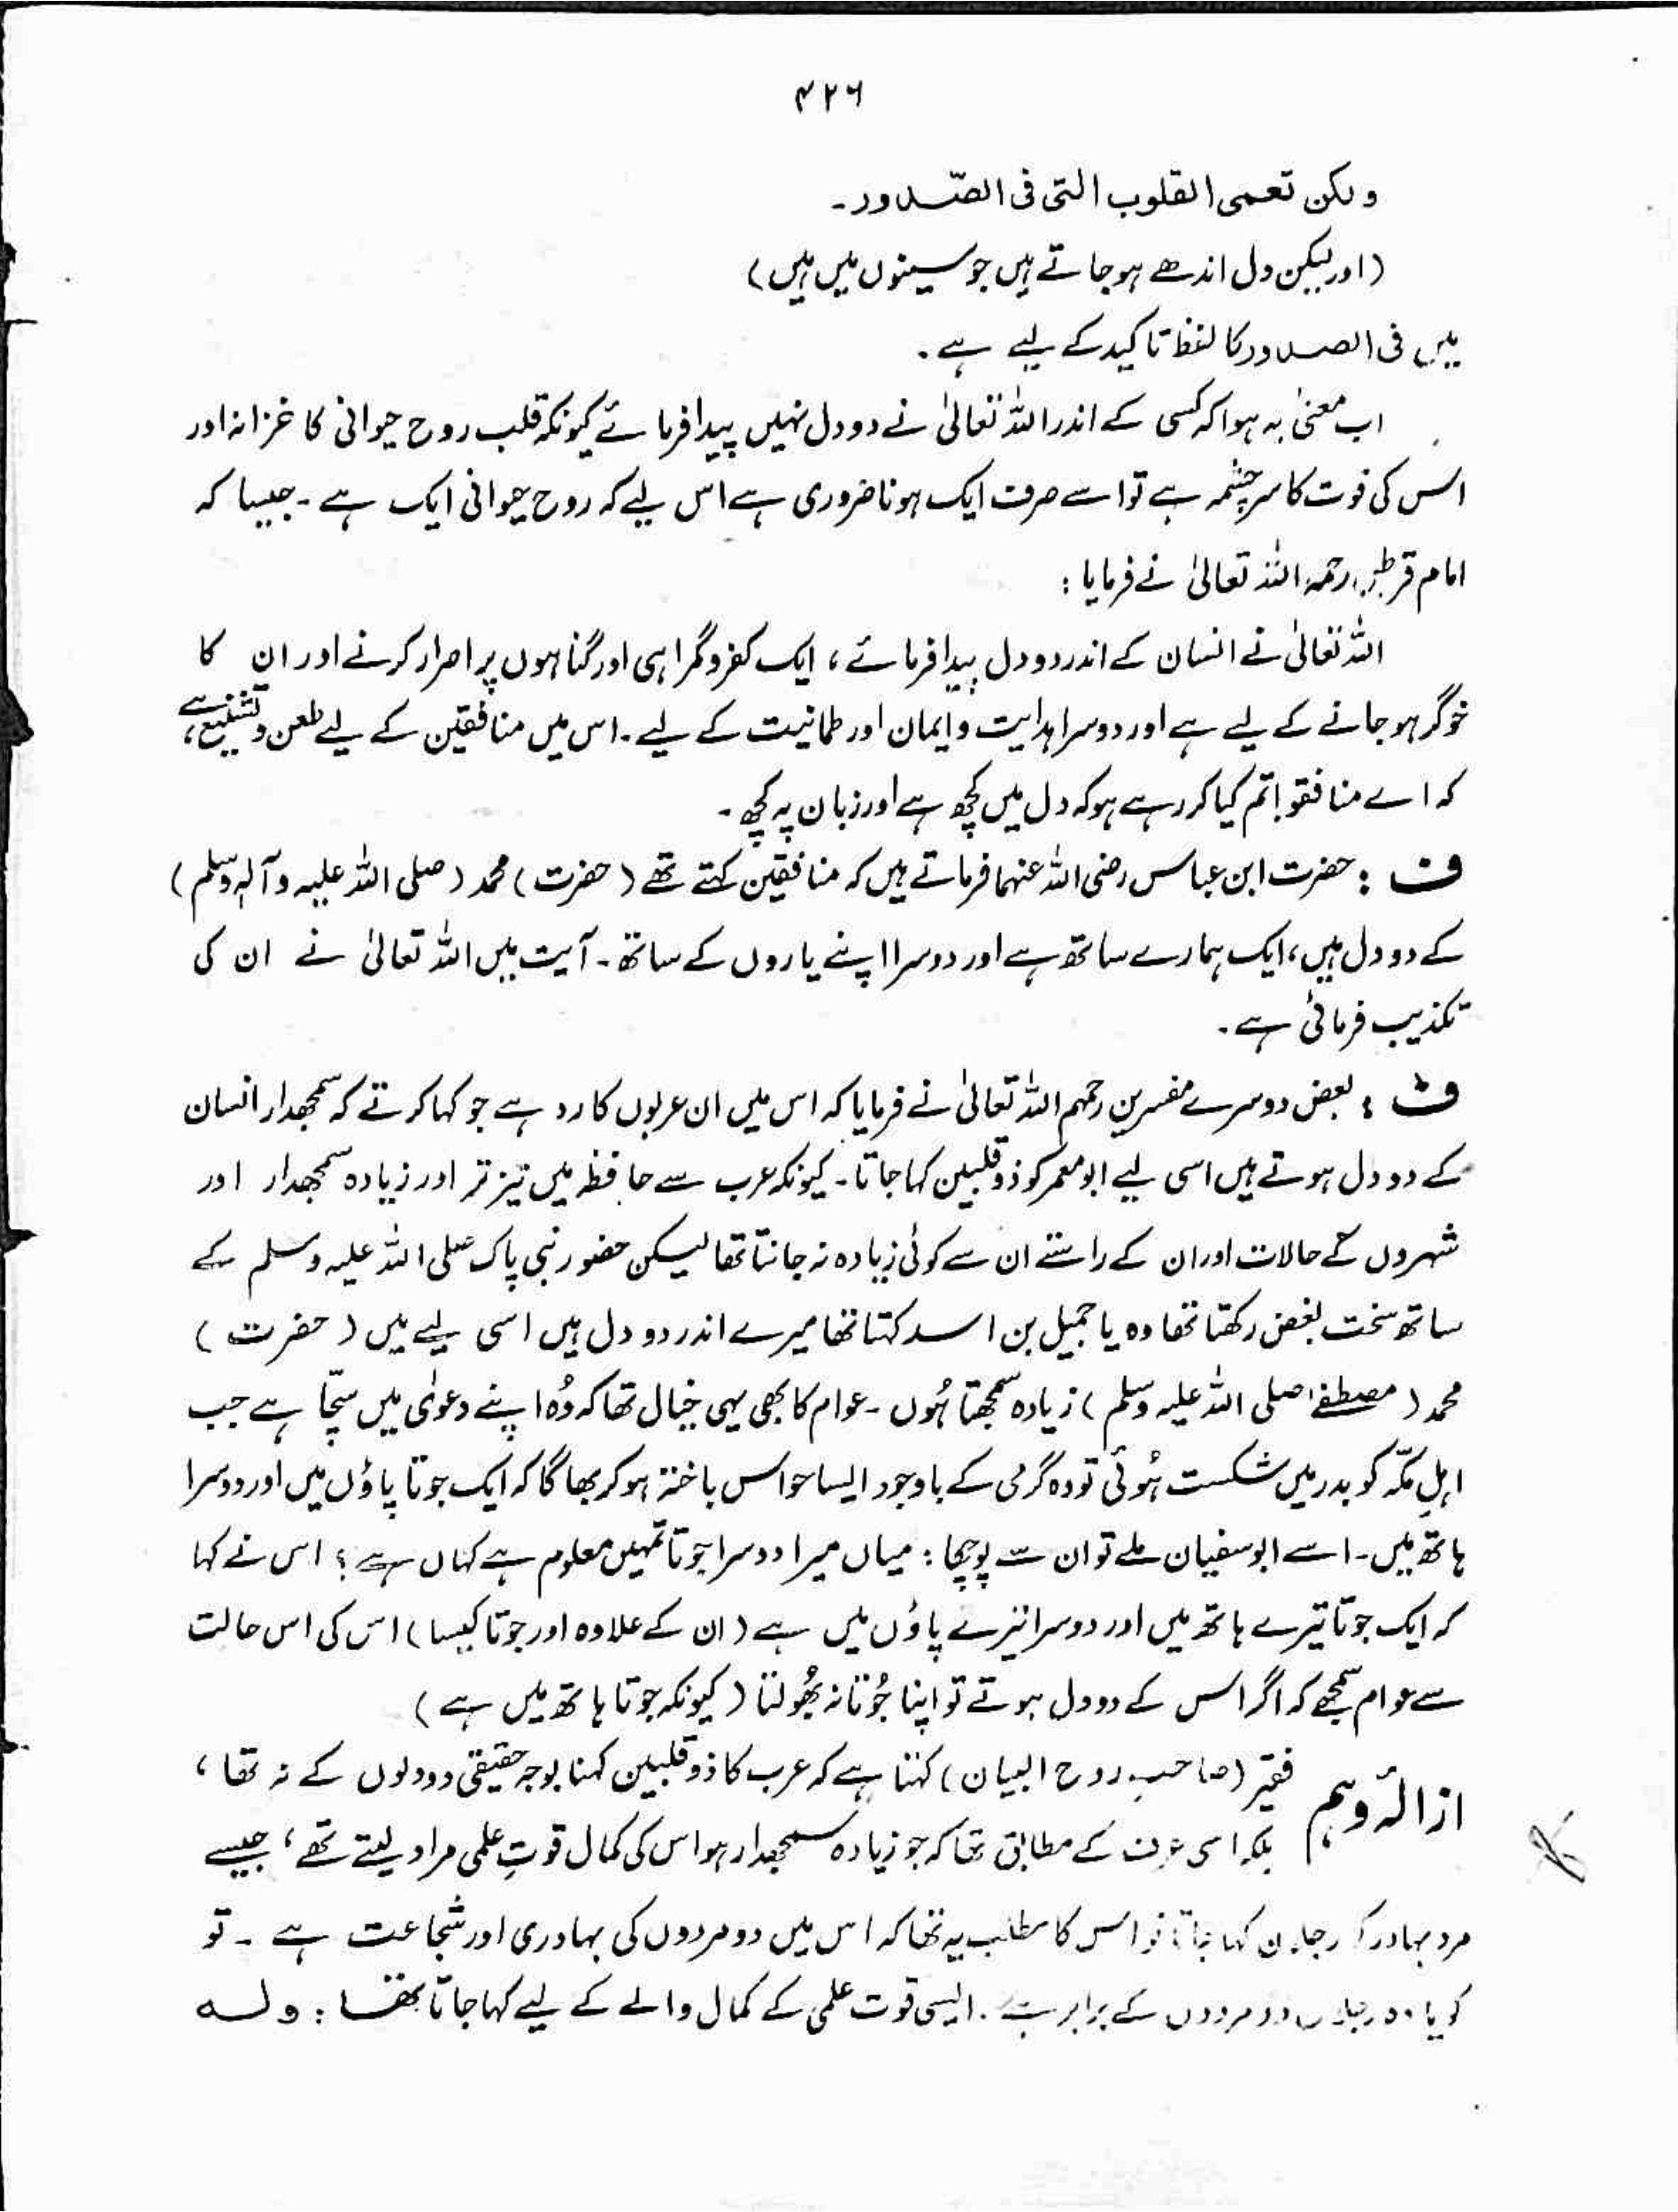 ۴۲۶
ولکن تعمی القلوب التی فی الصّدور۔
(اور لیکن دل اندھے ہو جاتے ہیں جو سینوں میں ہیں)
میں فی الصدور کا لفظ تاکید کے لیے ہے۔
اب معنیٰ یہ ہوا کہ کسی کے اندر اللہ تعالیٰ نے دو دل نہیں پیدا فرمائے کیونکہ قلب روح حیوانی کا خزانہ اور
اس کی قوت کا سرچشمہ ہے تو اسے صرف ایک ہونا ضروری ہے اس لیے کہ روح حیوانی ایک ہے۔ جیسا کہ
امام قرطبی رحمہ اللہ تعالیٰ نے فرمایا :
اللہ تعالیٰ نے انسان کے اندر دو دل پیدا فرمائے، ایک کفر و گمراہی اور گناہوں پر اصرار کرنے اور ان کا
خوگر ہو جانے کے لیے ہے اور دوسرا ہدایت و ایمان اور طمانیت کے لیے۔ اس میں منافقین کے لیے طعن و تشنیع ہے،
کہ اے منافقو! تم کیا کر رہے ہو کہ دل میں کچھ ہے اور زبان پہ کچھ۔
ف : حضرت ابن عباس رضی اللہ عنہما فرماتے ہیں کہ منافقین کہتے تھے (حضرت) محمد (صلی اللہ علیہ وآلہٖ وسلم)
کے دو دل ہیں، ایک ہمارے ساتھ ہے اور دوسرا اپنے یاروں کے ساتھ۔ آیت میں اللہ تعالیٰ نے ان کی
تکذیب فرمائی ہے۔
ف : بعض دوسرے مفسرین رحمہم اللہ تعالیٰ نے فرمایا کہ اس میں ان عربوں کا رد ہے جو کہا کرتے کہ سمجھدار انسان
کے دو دل ہوتے ہیں اسی لیے ابو معمر کو ذو قلبین کہا جاتا۔ کیونکہ عرب سے حافظہ میں تیز تر اور زیادہ سمجھدار اور
شہروں کے حالات اور ان کے راستے ان سے کوئی زیادہ نہ جانتا تھا لیکن حضور نبی پاک صلی اللہ علیہ وسلم کے
ساتھ سخت بغض رکھتا تھا وہ یا جمیل بن اسد کہتا تھا میرے اندر دو دل ہیں اسی لیے میں (حضرت)
محمد (مصطفےٰ صلی اللہ علیہ وسلم) زیادہ سمجھتا ہُوں۔ عوام کا بھی یہی خیال تھا کہ وُہ اپنے دعوٰی میں سچّا ہے جب
اہلِ مکّہ کو بدر میں شکست ہُوئی تو وہ گرمی کے باوجود ایسا حواس باختہ ہو کر بھاگا کہ ایک جوتا پاؤں میں اور دوسرا
ہاتھ میں۔ اسے ابو سفیان ملے تو ان سے پوچھا : میاں میرا دوسرا جوتا تمہیں معلوم ہے کہاں ہے؟ اس نے کہا
کہ ایک جوتا تیرے ہاتھ میں اور دوسرا تیرے پاؤں میں ہے (ان کے علاوہ اور جوتا کیسا) اس کی اس حالت
سے عوام سمجھے کہ اگر اس کے دو دل ہوتے تو اپنا جُوتا نہ بھُولتا (کیونکہ جوتا ہاتھ میں ہے)
ازالۂ وہم فقیر (صاحبِ روح البیان) کہتا ہے کہ عرب کا ذو قلبین کہنا بوجہ حقیقی دو دلوں کے نہ تھا،
بلکہ اسی عرف کے مطابق تھا کہ جو زیادہ سمجھدار ہو اس کی کمال قوتِ علمی مراد لیتے تھے، جیسے
مرد بہادر کو رجلان کہا جاتا تو اس کا مطلب یہ تھا کہ اس میں دو مردوں کی بہادری اور شجاعت ہے۔ تو
گویا وہ رجلان دو مردوں کے برابر ہے۔ ایسی قوت علمی کے کمال والے کے لیے کہا جاتا تھا : ولہ